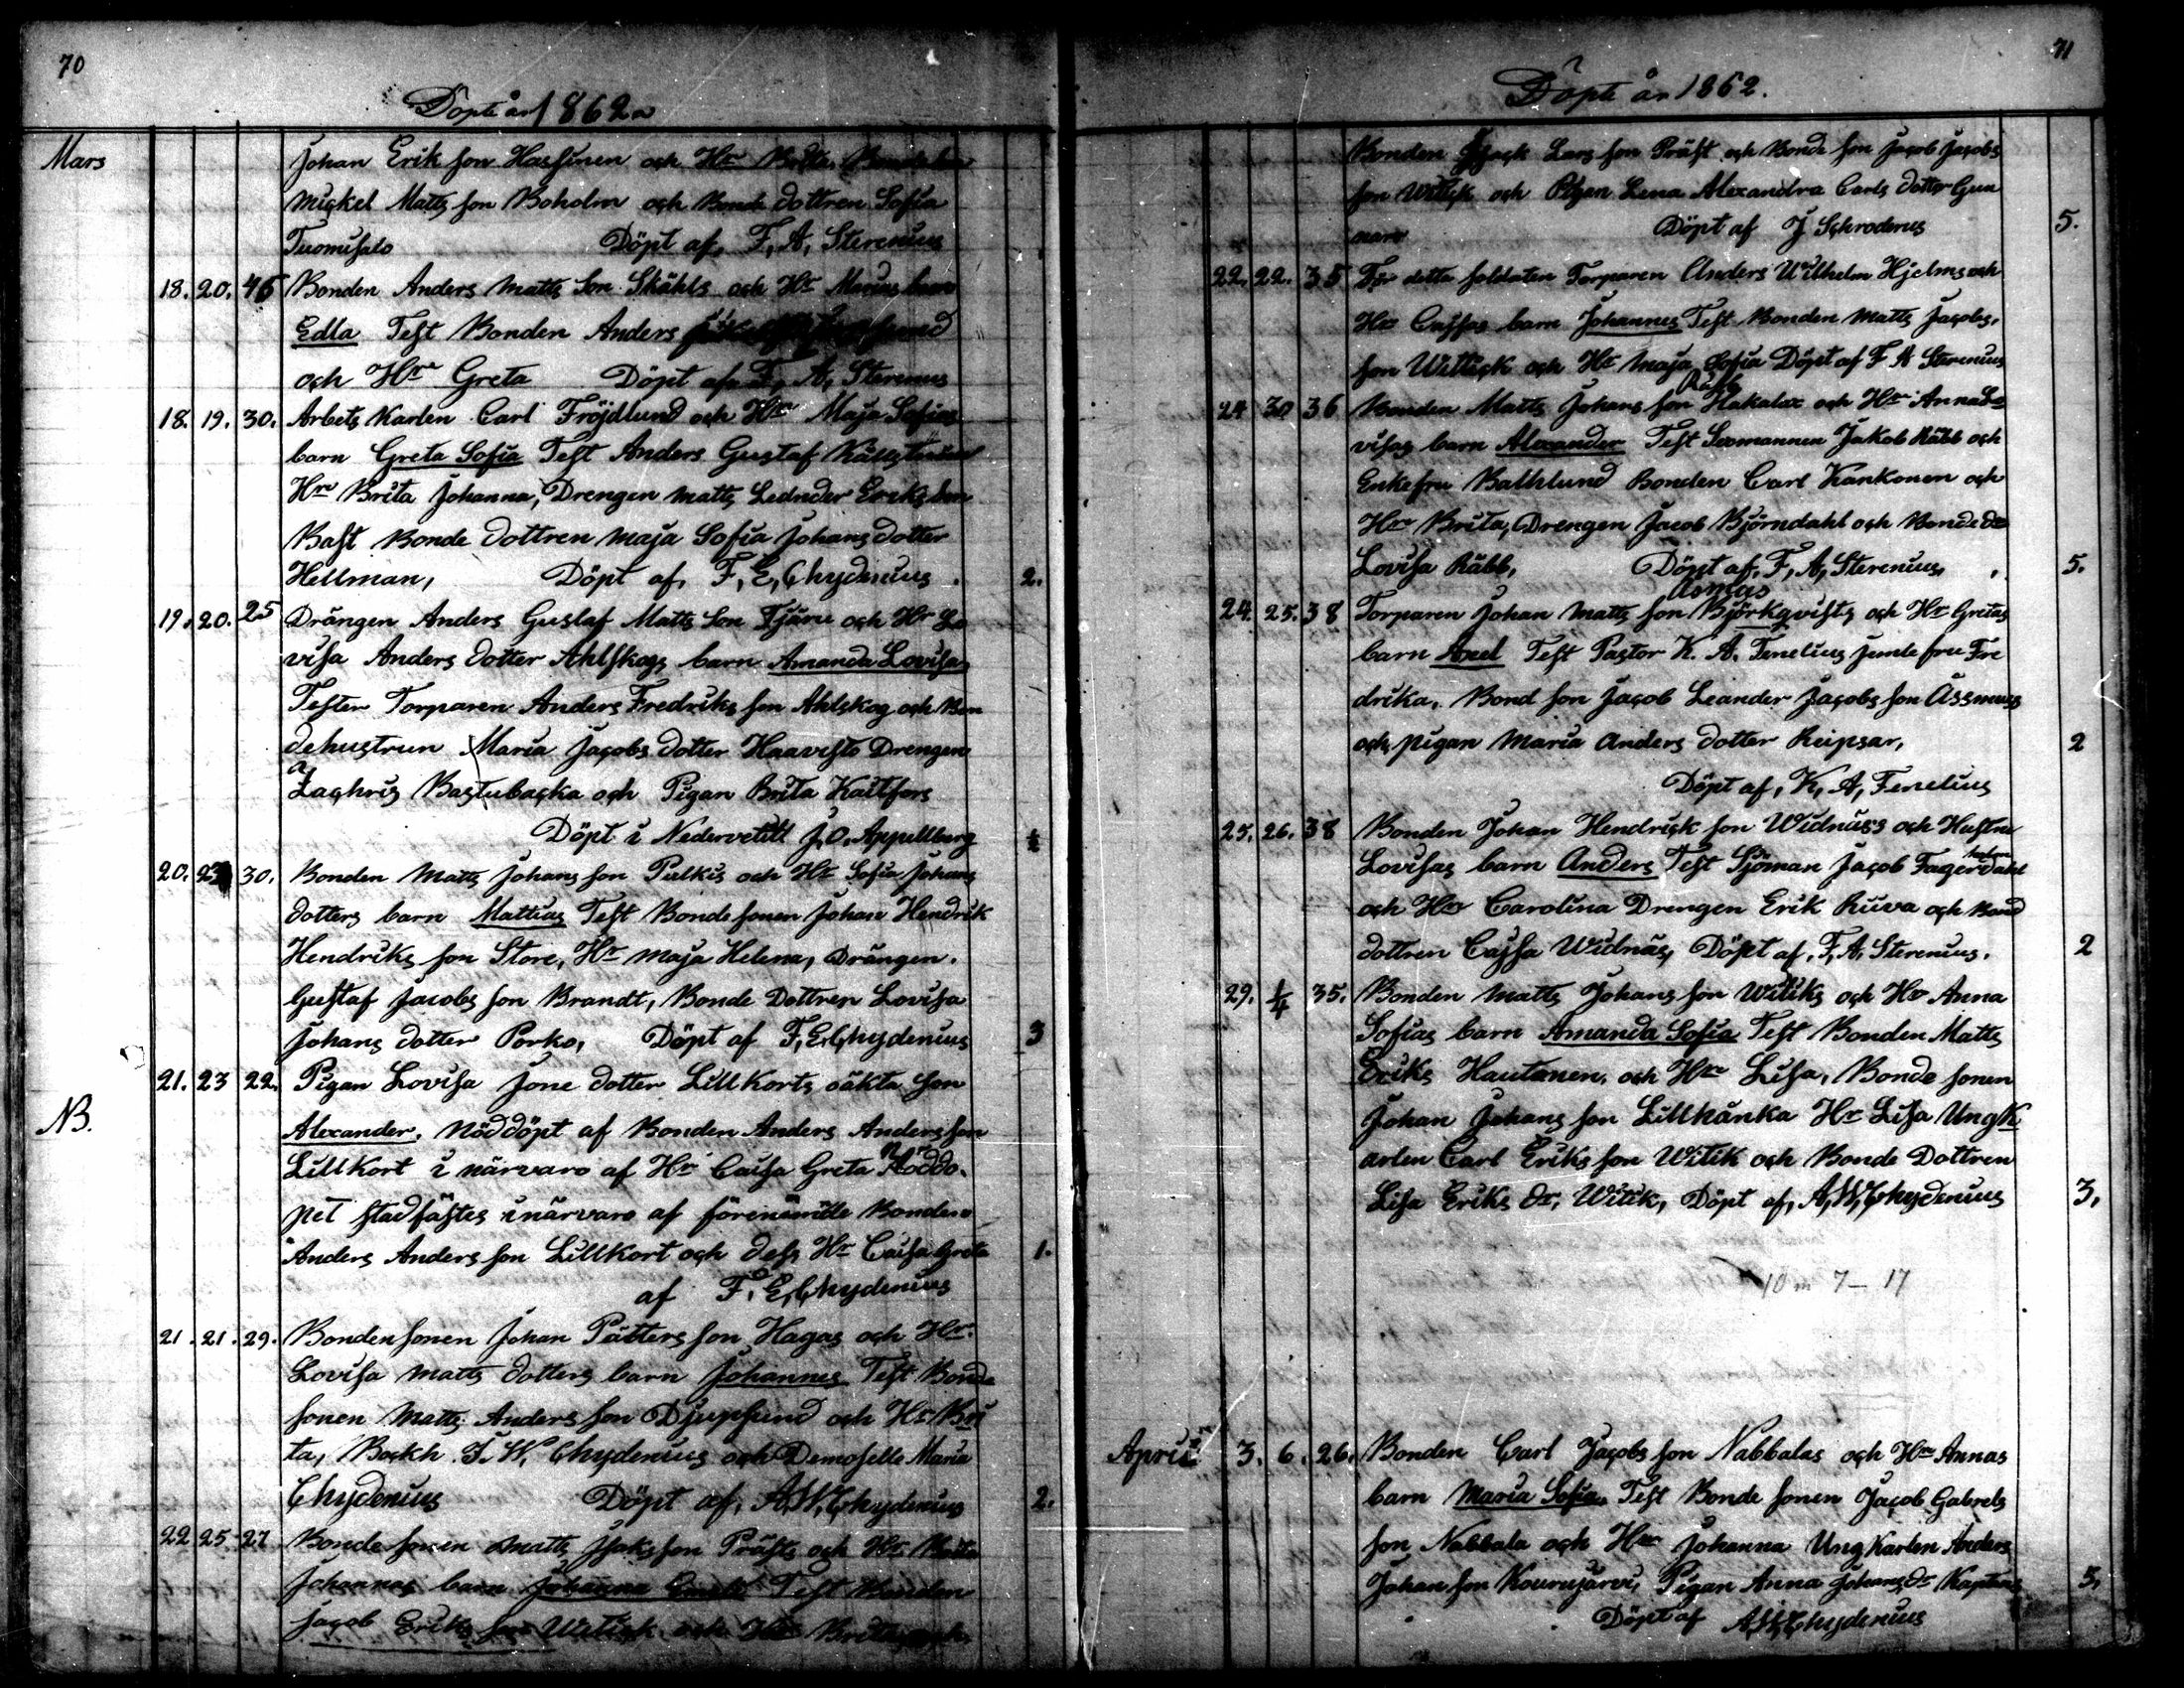 70
Döpte år 1862
Mars
Johan Erik son Hassinen och Hr Brita, Bonde son
Mickel Matts son Boholm och Bonde dottren Sofia
Tuomisalo Döpt af, F, A, Sterenius
18. 20. 46 Bonden Anders Matts Son Skåhls och Hr Marias barn
Edla Test Bonden Anders
och Hru Greta Döpt af F, A, Sterenius
18. 19. 30. Arbets Karlen Carl Fröjdlund och Hru Maja Sofias
barn Greta Sofia Test Anders Gustaf Källström
Hru Brita Johanna, Drengen Matts Leander Eriks son
Bast Bonde dottren Maja Sofia Johans dotter
Hellman, Döpt af, F, E, Chydenius. 2.
19. 20. 25 Drängen Anders Gustaf Matts Son Tjäru och Hr Lo
visa Anders dotter Ahlskogs barn Amanda Lovisa
Tester Torparen Anders Fredriks son Ahlskog och Bon
dehustrun Maria Jacobs dotter Haavisto Drengen
Zachris Bastubacka och Pigan Brita Kaitfors
Döpt i Nedervetill J, O, Appellberg
20. 23 30. Bonden Matts Johans son Pulkis och Hr Sofia Johans
dotters barn Mattias Test Bonde sonen Johan Hendrik
Hendriks son Store, Hr Maja Helena, Drängen.
Gustaf Jacobs son Brandt, Bonde Dottren Lovisa
Johans dotter Porko, Döpt af F, E, Chydenius 3
21. 23 22. Pigan Lovisa Jone dotter Lillkorts oäkta son
NB. Alexander. Nöddöpt af Bonden Anders Anders son
Lillkort i närvaro af Hr Caisa Greta Nöddo.
pet stadfästes i närvaro af förenämde Bonden
Anders Anders son Lillkort och dess Hr Caisa Greta 1.
af F. E, Chydenius
21. 21. 29. Bonden sonen Johan Pätters son Hagas och Hr.
Lovisa Matts dotters barn Johannes Test Bonde
sonen Matts Anders son Djupsund och Hr Bri
ta, Bockh. F. W. Chydenius och Demoselle Maria
Chydenius Döpt af, A, W, Chydenius 2.
22 25 27 Bonde sonen Matts Isaks son Präste och Hr Maria
Johannas barn Johanna Test Bonden
Jacob Eriks son Witick och Hr Brita och
71
Döpte år 1862.
Bonden Isack Lars son Präst och Bonde son Jacob Jacobs
son Witick och Pigan Lena Alexandra Carls dotter Gun
nars Döpt af J Schroderus 5.
22. 22. 35 För detta soldaten Torparen Anders Wilhelm Hjelms och
Hr Cajsas barn Johannes Test Bonden Matts Jacobs,
son Wittick och Hr Maja Sofia Döpt af F A Sterenius
Räbb
24 30 36 Bonden Matts Johans son Hakalax och Hr Anna Lo
visas barn Alexander Test Seemannen Jakob Räbb och
Enkefru Bathlund Bonden Carl Kankonen och
Hr Brita, Drengen Jacob Björndahl och Bonde dr
Lovisa Räbb, Döpt af, F, A, Sterenius, 5.
Asmas
24. 25. 38 Torparen Johan Matts son Björkqvists och Hr Gretas
barn Axel Test Pastor K. A. Fenelius jemte fru Fre
drika. Bond son Jacob Leander Jacobs son Assmus
och pigan Maria Anders dotter Reipsar, 2
Döpt af, K, A, Fenelius
25. 26. 38 Bonden Johan Hendrick son Widnäss och Hustru
Lovisas barn Anders Test Sjöman Jacob Fagerdahl
och Hr Carolina Drengen Erik Ruva och Bond
dottren Cajsa Widnäs, Döpt af, F, A, Sterenius. 2
29. 1/4 35. Bonden Matts Johans son Witiks och Hr Anna
Sofias barn Amanda Sofia Test Bonden Matts
Eriks Hautanen, och Hru Lisa, Bonde sonen
Johan Johans son Lillkånka Hr Lisa Ungk
arlen Carl Eriks son Witik och Bonde Dottren
Lisa Eriks dr, Witik, Döpt af, A, W, Chydenius 3,
10 m 7 – 17
April 3. 6. 26. Bonden Carl Jacobs son Nabbalas och Hru Annas
barn Maria Sofia. Test Bonde sonen Jacob Gabriels
son Nabbala och Hru Johanna Ungkarlen Anders
Johan son Kourujärvi, Pigan Anna Johans dr Kaptens 5,
Döpt af A, W, Chydenius